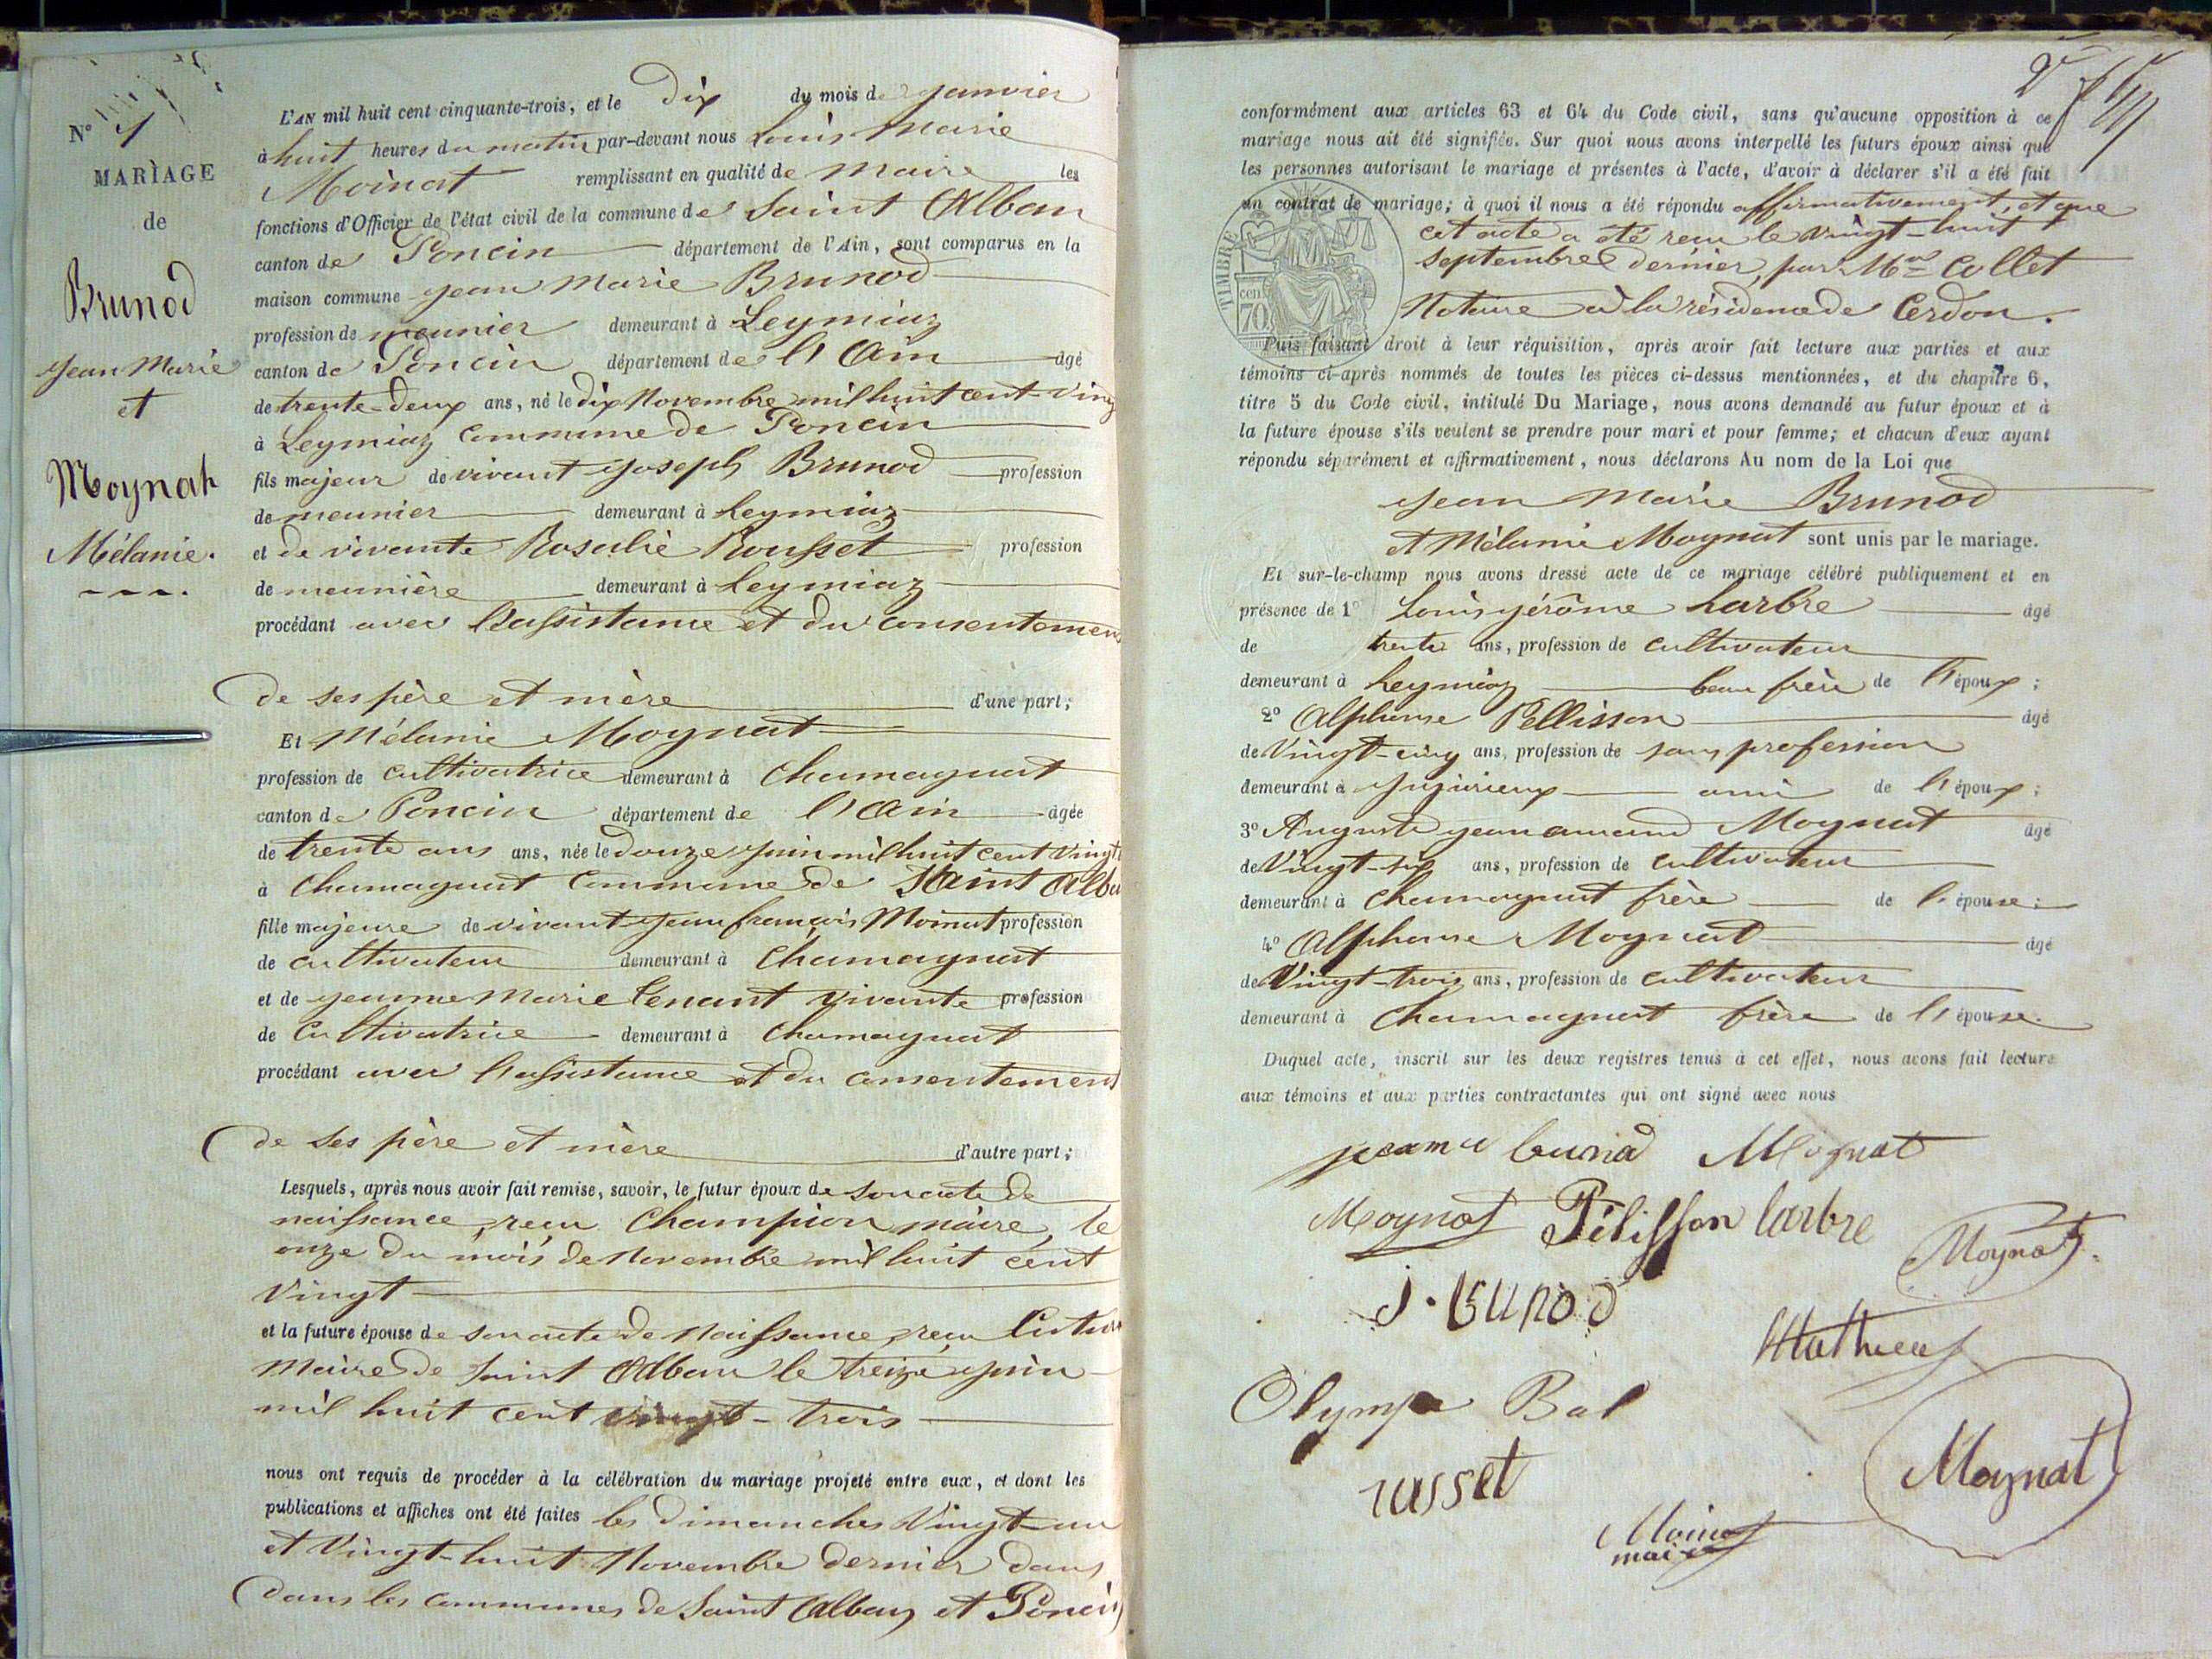 N° 1
MARIAGE
de
Brunod
Jean Marie
et
Moynat
Mélanie.
L'AN mil huit cent cinquante-trois, et le Dix du mois de Janvier
à huit heures du matin par-devant nous Louis Marie
Moinat remplissant en qualité de Maire les
fonctions d'Officier de l'état civil de la commune de Saint Alban
canton de Poncin département de l'Ain, sont comparus en la
maison commune Jean Marie Brunod
profession de meunier demeurant à Leymiaz
canton de Poncin département de l'Ain âgé
de trente-deux ans, né le dix Novembre mil huit cent vingt
à Leymiaz Commune de Poncin
fils majeur de vivant Joseph Brunod profession
de meunier demeurant à Leymiaz
et de vivante Rosalie Rousset profession
de meunière demeurant à Leymiaz
procédant avec l'assistance et du consentement
de ses père et mère d'une part;
Et Mélanie Moynat
profession de cultivatrice demeurant à Chamagnat
canton de Poncin département de l'Ain âgée
de trente ans ans, née le douze juin mil huit cent vingt
à Chamagnat Commune de Saint Alban
fille majeure de vivant Jean françois Moinat profession
de cultivateur demeurant à Chamagnat
et de Jeanne Marie Tenant vivante profession
de Cultivatrice demeurant à Chamagnat
procédant avec l'assistance et du consentement
de ses père et mère d'autre part;
Lesquels, après nous avoir fait remise, savoir, le futur époux de son acte de
naissance, reçu Champion maire, le
onze du mois de Novembre mil huit cent
vingt
et la future épouse de son acte de Naissance, reçu
Maire de Saint Alban le treize juin
mil huit cent vingt-trois
nous ont requis de procéder à la célébration du mariage projeté entre eux, et dont les
publications et affiches ont été faites les dimanches Vingt-un
et Vingt-huit Novembre dernier dans
dans les communes de Saint Alban et Poncin
conformément aux articles 63 et 64 du Code civil, sans qu'aucune opposition à ce
mariage nous ait été signifiée. Sur quoi nous avons interpellé les futurs époux ainsi que
les personnes autorisant le mariage et présentes à l'acte, d'avoir à déclarer s'il a été fait
un contrat de mariage; à quoi il nous a été répondu affirmativement, et que
cet acte a été reçu le vingt-huit
septembre dernier, par Collet
Notaire à la résidence de Cerdon.
TIMBRE
cent
70
Puis faisant droit à leur réquisition, après avoir fait lecture aux parties et aux
témoins ci-après nommés de toutes les pièces ci-dessus mentionnées, et du chapitre 6,
titre 5 du Code civil, intitulé Du Mariage, nous avons demandé au futur époux et à
la future épouse s'ils veulent se prendre pour mari et pour femme; et chacun d'eux ayant
répondu séparément et affirmativement, nous déclarons Au nom de la Loi que
Jean Marie Brunod
et Mélanie Moynat sont unis par le mariage.
Et sur-le-champ nous avons dressé acte de ce mariage célébré publiquement et en
présence de 1° Louis Jérôme Larbre âgé
de trente ans, profession de cultivateur
demeurant à Leymiaz beau frère de l'époux;
2° Alphonse Pellisson âgé
de Vingt-cinq ans, profession de sans profession
demeurant à Jujurieux ami de l'époux;
3° Auguste Jean amand Moynat âgé
de Vingt-six ans, profession de cultivateur
demeurant à Chamagnat frère de l'épouse;
4° Alphonse Moynat âgé
de Vingt-trois ans, profession de cultivateur
demeurant à Chamagnat frère de l'épouse.
Duquel acte, inscrit sur les deux registres tenus à cet effet, nous avons fait lecture
aux témoins et aux parties contractantes qui ont signé avec nous
Moynat
Moynat Pélisson larbre
Moynat
Mathieu
Olympe Bal
Moynat
Moinat
maire